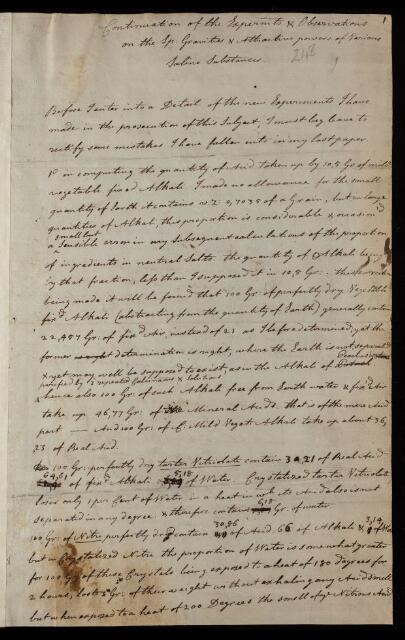 Continuation of the Experimts & Observations
on the Sp. Gravities & Attractive powers of Various
Saline Substances.
248
1
Before I enter into a Detail of the new Experiments I have
made in the prosecution of this Subject, I must beg leave to
rectify some mistakes I have fallen into in my last paper
1o in computing the quantity of Acid taken up by 10,5 Gr. of mild
vegetable fixed Alkali I made no allowance for the small
quantity of Earth it contains wch is 0,7035 of a Grain, but in large
quantities of Alkali, this proportion is considerable & occasions
small but
a sensible error in my subsequent calculations of the proportion
of ingredients in neutral Salts. the quantity of Alkali being
by that fraction, less than I supposed it in 10,5 Gr. this correction
being made it will be found that 100 Gr. of perfectly dry Vegetable
fixd Alkali (abstracting from the quantity of Earth) generally contain
22,457 Gr. of fixd Air, instead of 21 as I before determined, yet the
former determination is right, where the Earth is not separated
& yet may well be supposed to exist, as in the Alkali of
purified by 3 repeated Calcinations & Solutions
& hence also 100 Gr. of such Alkali free from Earth water & fixd Air
take up 46,77 Gr. of the Mineral Acids. that is of the mere Acid
part — And 100 Gr. of C. Mild Veget. Alkali take up about 36,
23 of Real Acid.
100 Gr. perfectly dry tartar Vitriolate contain 30,21 of Real Acid
64,61 of fixd Alkali 5,18 of Water. Crystallized tartar Vitriolate
loses only 1 per Cent of Water in a heat in wch its Acid also is not
separated in any degree & therefore contains 6,18 Gr. of water
100 Gr. of Nitre perfectly dry contain 30,86 of Acid 66 of Alkali & 3,14 of Water
but in Crystallized Nitre the proportion of Water is somewhat greater
for 100 Gr. of these Crystals being exposed to a heat of 180 degrees for
2 hours, lost 3 Gr. of their weight without exhaling any Acid smell
but when exposed to a heat of 200 Degrees the smell of ye Nitrous Acid